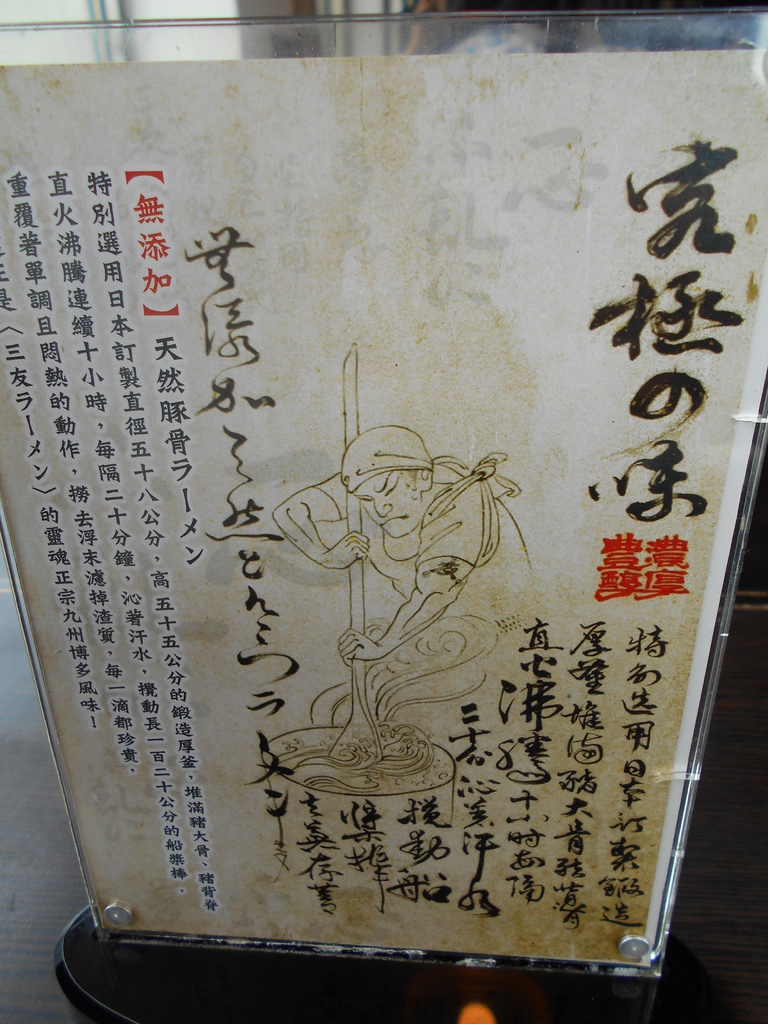 究極の味
濃厚
豊醇
特別选用日本訂製鍛造
厚釜堆满豬大骨豬背脊
直火沸騰十小时每隔
二十分沁著汗水
攪動船
槳棒
無添加天然とんこつラーメン
【無添加】天然豚骨ラーメン
特別選用日本訂製直徑五十八公分，高五十五公分的鍛造厚釜，堆滿豬大骨、豬背脊
直火沸騰連續十小時，每隔二十分鐘，沁著汗水，攪動長一百二十公分的船槳棒，
重覆著單調且悶熱的動作，撈去浮末濾掉渣質，每一滴都珍貴，
是〈三友ラーメン〉的靈魂正宗九州博多風味！